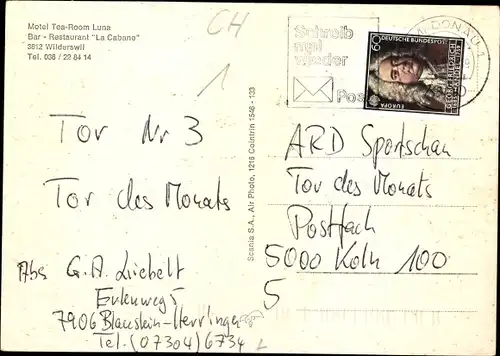 Motel Tea-Room Luna
Bar - Restaurant "La Cabane"
3812 Wilderswil
Tel. 036 / 22 84 14
CH
1
Schreib
mal
wieder
Post
DONAU
60
DEUTSCHE BUNDESPOST
GEORG FRIEDRICH
HÄNDEL
EUROPA
Scania S.A., Air Photo, 1216 Cointrin 1548 - 133
Tor Nr 3
Tor des Monats
Abs G. A. Liebelt
Eulenweg 5
7906 Blaustein-Herrlingen
Tel. (07304) 6734
ARD Sportschau
Tor des Monats
Postfach
5000 Köln 100
5